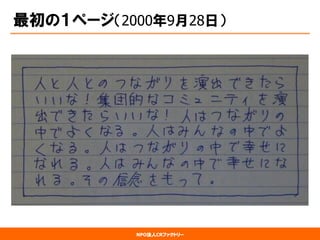 最初の1ページ（2000年9月28日）
人と人とのつながりを演出できたら
いいな！集団的なコミュニティを演
出できたらいいな！人はつながりの
中でよくなる。人はみんなの中でよ
くなる。人はつながりの中で幸せに
なれる。人はみんなの中で幸せにな
れる。その信念をもって。
NPO法人CRファクトリー